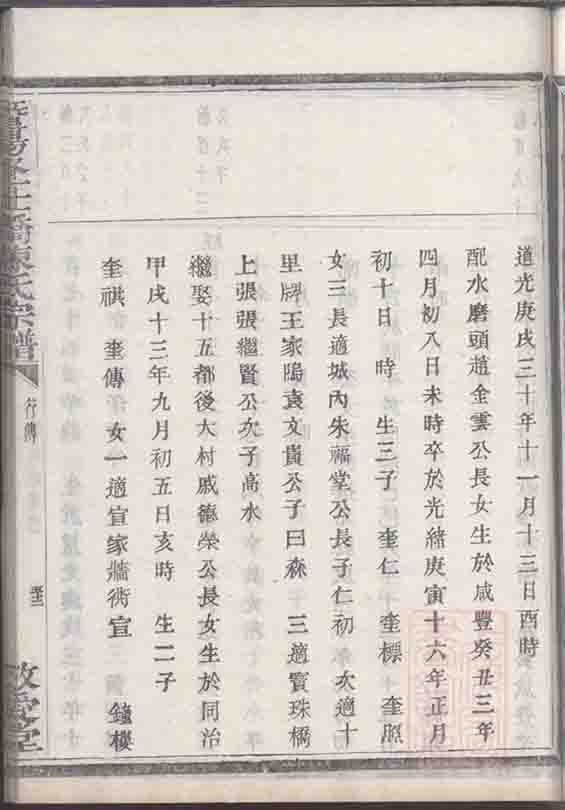 道光庚戌三十年十一月十三日酉時
配水磨頭趙金雲公長女生於咸豐癸丑三年
四月初八日未時卒於光緒庚寅十六年正月
初十日　時　生三子　奎仁　奎標　奎照
女三長適城內朱福堂公長子仁初　次適十
里牌王家隖袁文貴公子曰森　三適寶珠橋
上張張繼賢公次子高水
繼娶十五都後大村戚德榮公長女生於同治
甲戌十三年九月初五日亥時　生二子
奎祺　奎傳　女一適宣家牆衖宣　鐘樓
橋陳氏宗譜
行傳
敬愛堂